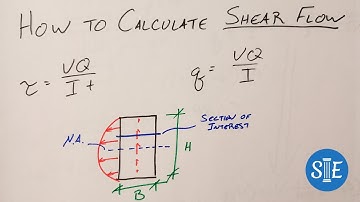 HOW TO CALCULATE SHEAR FLOW
τ = VQ / I t
q = VQ / I
SECTION OF
INTEREST
N.A.
H
B
SE